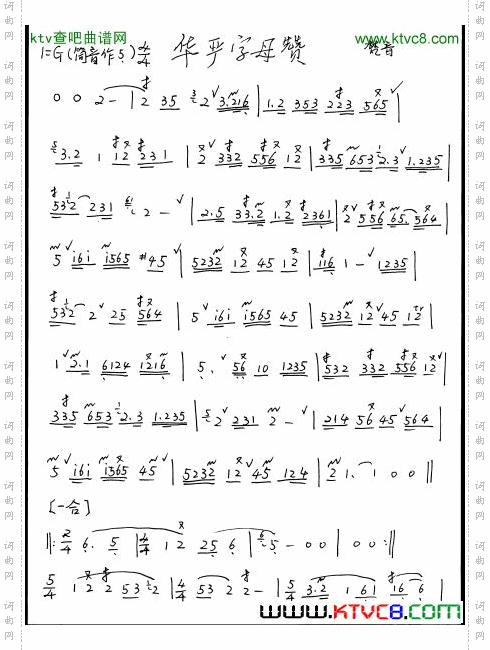 ktv查吧曲谱网
www.ktvc8.com
1=G(筒音作5) 4/4 华严字母赞
0 0 2 - | 2 35 3 2 3.216 | 1.2 353 223 565 |
3.2 1 12 231 | 2 332 556 12 | 335 653 2.3 1.235 |
532 231 2 - | 2.5 33.2 1.2 2361 | 2 556 65. 564 |
5 i6i i565 #45 | 5232 12 45 12 | 116 1 - 1235 |
532 2 25 564 | 5 i6i i565 45 | 5232 12 45 12 |
1 2.1 6124 1216 | 5. 56 10 1235 | 532 332 556 12 |
335 653 2.3 1.235 | 2 231 2 - | 214 56 45 564 |
5 i6i i365 45 | 5232 12 45 124 | 2 1. 1 0 0 ||
[一合]
||: 2/4 6. 5 | 4/4 1 2 25 6 | 5 - 00 | 00 :||
5/4 1 2 2 53 2 | 4/4 53 2 2 - | 5/4 3.2 1 61 16 6 |
www.KTVC8.com